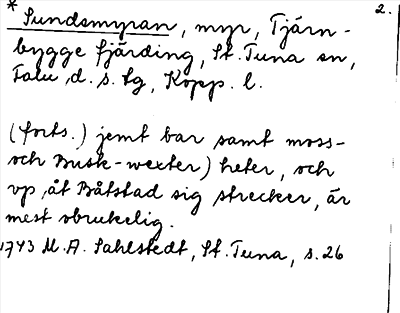 * Sundsmyran, myr, Tjärn- 2.
bygge fjärding, St. Tuna sn,
Falu d. s. lg, Kopp. l.
(forts.) jemt bar samt moss-
och Busk-wexter) heter, och
vp åt Båtstad sig strecker, är
mest obrukelig.
1743 M. A. Sahlstedt, St. Tuna, s. 26